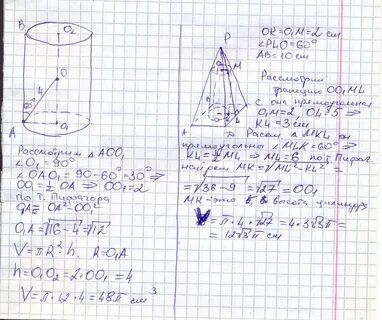 B
O₂
O
4
60°
A
O₁
Рассмотрим △AOO₁
∠O₁ = 90°
∠OAO₁ = 90-60=30° ⇒
OO₁ = ½ OA ⇒ OO₁=2
По Т. Пифагора
OA² - OO₁²
O₁A = √16-4 = √12
V = πR²h. R = O₁A
h = O₁O₂ = 2·OO₁ = 4
V = π·12·4 = 48π см³
P
O
M
A
4
OK=O₁M=2 см
∠P4O=60°
AB=10 см
Рассмотрим
трапецию OO₁M4
с она прямоугольная
O₁M=2, O4=5 ⇒
K4 = 3 см
⇒ Рассм. △MK4 он
прямоугольный ∠M4K=60° ⇒
K4 = ½ M4 ⇒ M4=6 по т. Пифаг.
найдём MK = √M4² - K4² =
= √36-9 = √27 = OO₁
MK - это высота цилиндра
V = π·4·√27 = 4·3√3π =
= 12√3π см